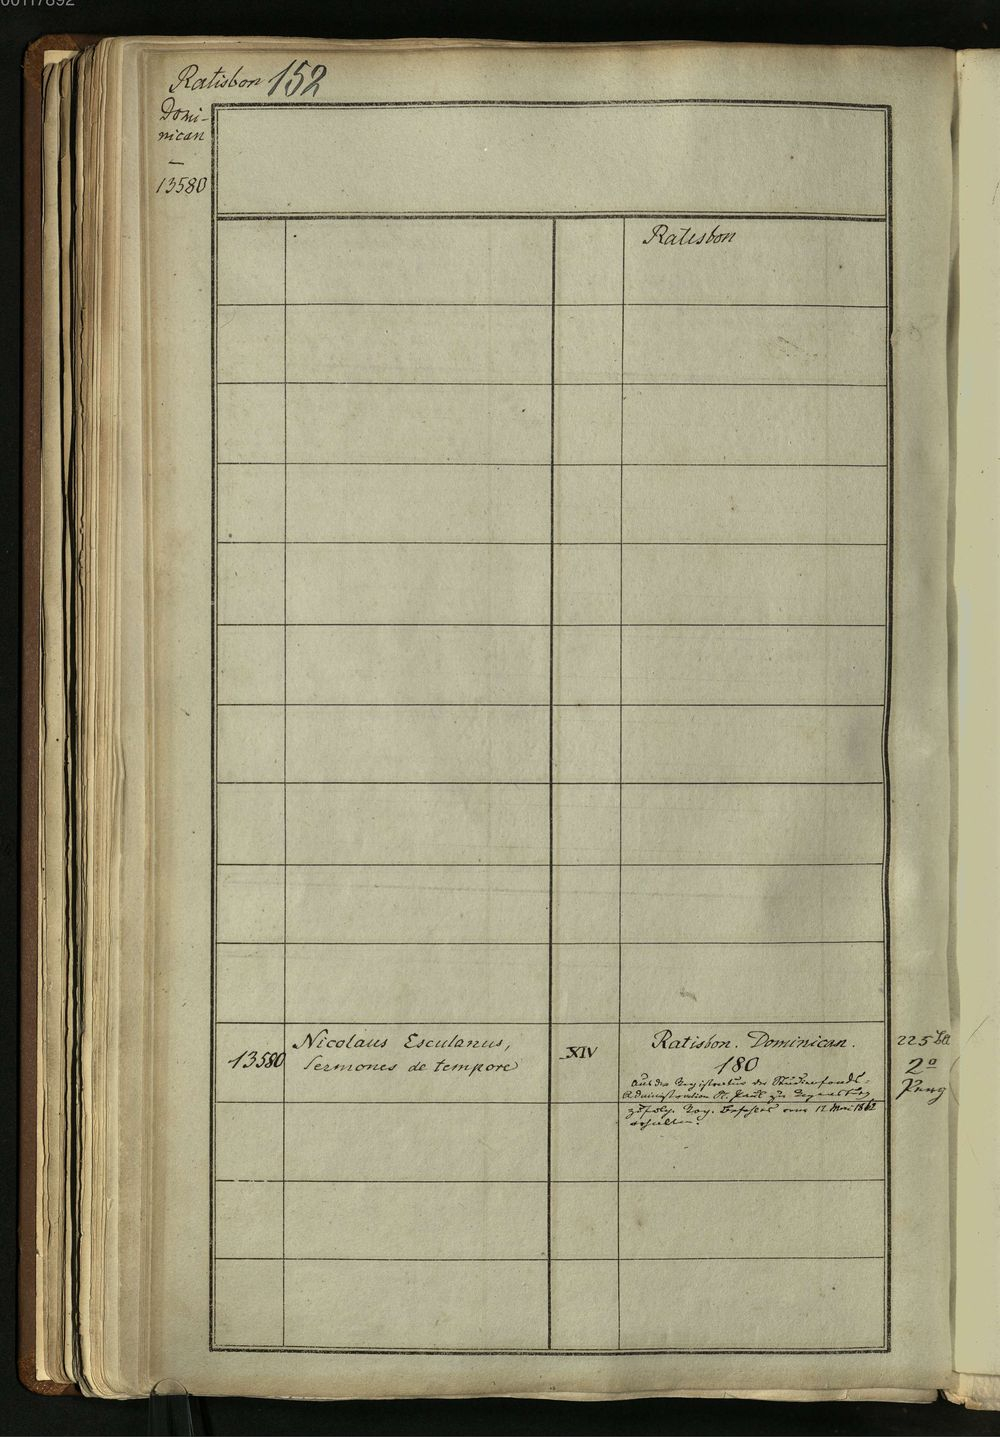 Ratisbon 152
Domi-
nican
—
13580
Ratisbon
13580
Nicolaus Esculanus,
Sermones de tempore
XIV
Ratisbon. Dominican.
180
Aus der Registratur des Studienfonds-
Administration St. Paul zu Regensburg
zufolg. Reg. Befehles vom 12 Mai 1862
erhalten.
225 Bll
2º
Perg